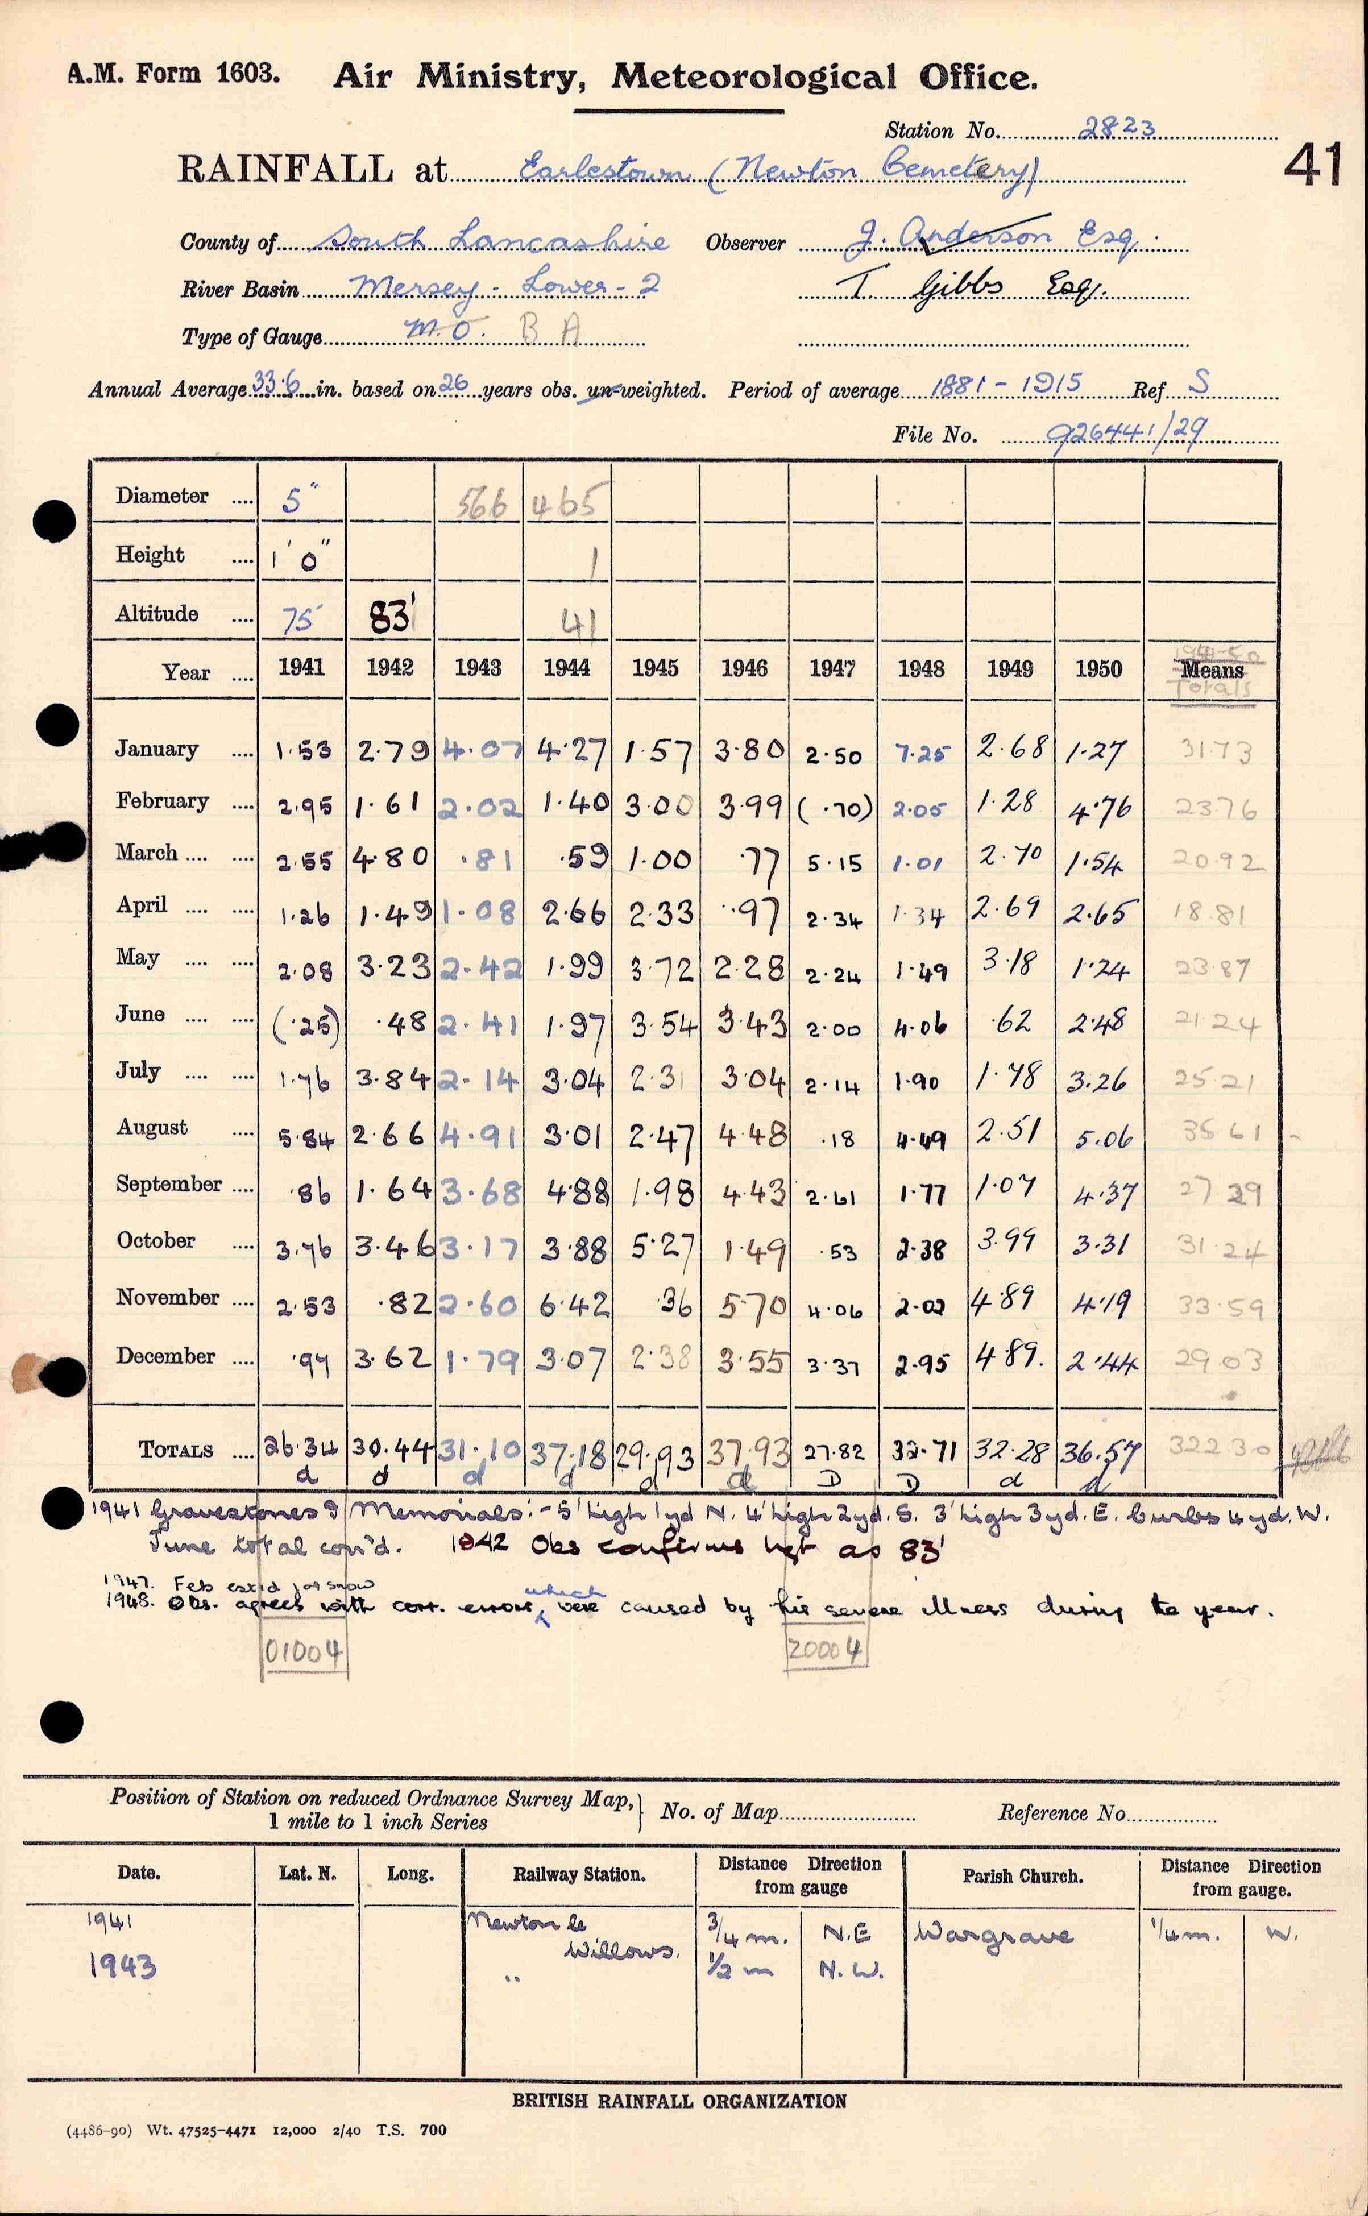 A.M. Form 1603. Air Ministry, Meteorological Office.
Station No. 2823
41
RAINFALL at Earlestown (Newton Cemetery)
County of South Lancashire Observer J. Anderson Esq.
River Basin Mersey - Lower - 2 T. Gibbs Esq.
Type of Gauge M.O. B A
Annual Average 33.6 in. based on 26 years obs. un-weighted. Period of average 1881 - 1915 Ref S
File No. 926441/29
Diameter 5" 566 465
Height 1'0" 1
Altitude 75' 83' 41
1941-50
Year 1941 1942 1943 1944 1945 1946 1947 1948 1949 1950 Means
Totals
January 1.53 2.79 4.07 4.27 1.57 3.80 2.50 7.25 2.68 1.27 31.73
February 2.95 1.61 2.02 1.40 3.00 3.99 (.70) 2.05 1.28 4.76 23.76
March 2.55 4.80 .81 .59 1.00 .77 5.15 1.01 2.70 1.54 20.92
April 1.26 1.49 1.08 2.66 2.33 .97 2.34 1.34 2.69 2.65 18.81
May 2.08 3.23 2.42 1.99 3.72 2.28 2.24 1.49 3.18 1.24 23.87
June (.25) .48 2.41 1.97 3.54 3.43 2.00 4.06 .62 2.48 21.24
July 1.76 3.84 2.14 3.04 2.31 3.04 2.14 1.90 1.78 3.26 25.21
August 5.84 2.66 4.91 3.01 2.47 4.48 .18 4.49 2.51 5.06 35.61
September .86 1.64 3.68 4.88 1.98 4.43 2.61 1.77 1.07 4.37 27.29
October 3.76 3.46 3.17 3.88 5.27 1.49 .53 2.38 3.99 3.31 31.24
November 2.53 .82 2.60 6.42 .36 5.70 4.06 2.02 4.89 4.19 33.59
December .97 3.62 1.79 3.07 2.38 3.55 3.37 2.95 4.89. 2.44 29.03
TOTALS 26.34 30.44 31.10 37.18 29.93 37.93 27.82 32.71 32.28 36.57 322.30
d d d d d d D D d d
1941 Gravestones & Memorials:- 5' high 1 yd N. 4' high 2 yd. S. 3' high 3 yd. E. Curbs 4 yd. W.
June total con'd. 1942 Obs confirms hgt as 83'
1947. Feb est'd for snow
1948. Obs. agrees with corr. errors, which were caused by his severe illness during the year.
01004 20004
Position of Station on reduced Ordnance Survey Map, 1 mile to 1 inch Series } No. of Map Reference No.
Date. Lat. N. Long. Railway Station. Distance Direction from gauge Parish Church. Distance Direction from gauge.
1941 Newton le Willows. 3/4 m. N.E Wargrave 1/4 m. W.
1943 " 1/2 m N.W.
BRITISH RAINFALL ORGANIZATION
(4486-90) Wt. 47525-4471 12,000 2/40 T.S. 700